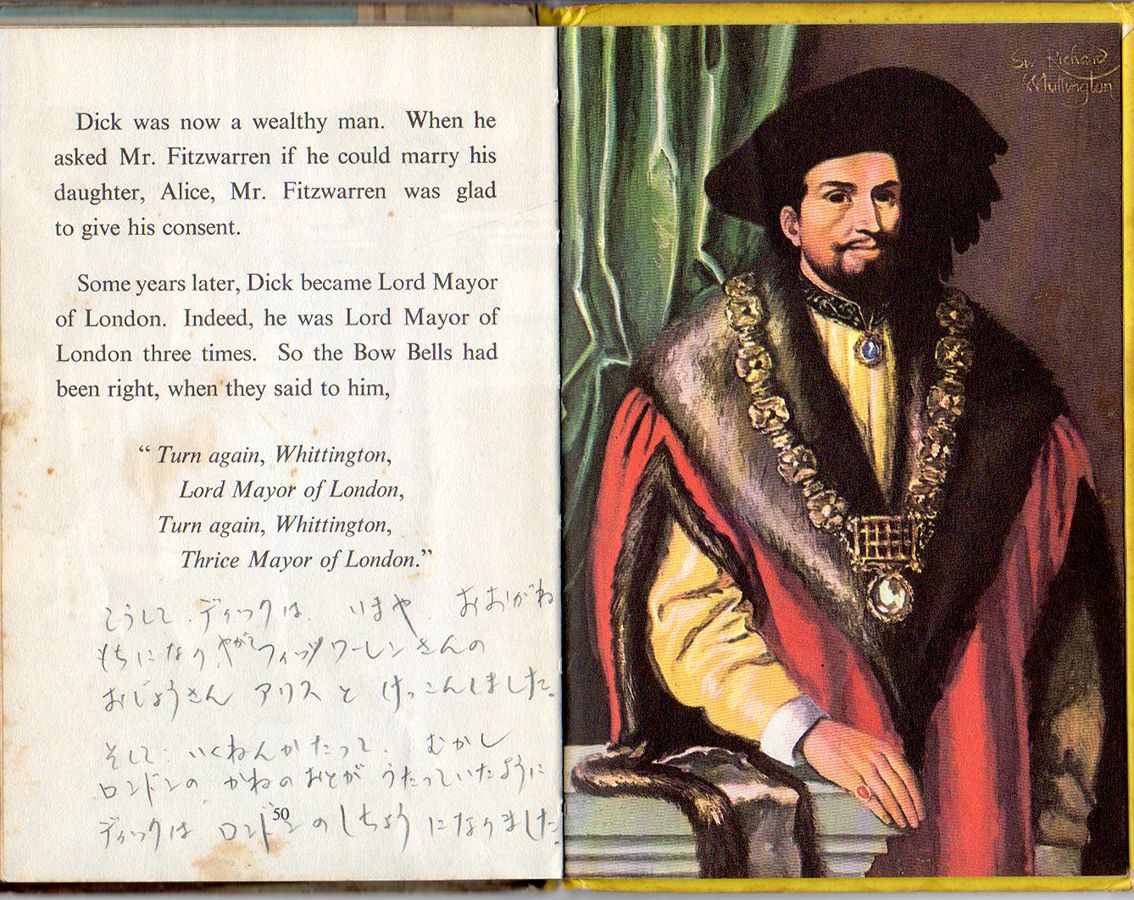 Dick was now a wealthy man. When he
asked Mr. Fitzwarren if he could marry his
daughter, Alice, Mr. Fitzwarren was glad
to give his consent.
Some years later, Dick became Lord Mayor
of London. Indeed, he was Lord Mayor of
London three times. So the Bow Bells had
been right, when they said to him,
“ Turn again, Whittington,
Lord Mayor of London,
Turn again, Whittington,
Thrice Mayor of London.”
こうして、ディックは、いまや、おおがね
もちになり、やがてフィッツワーレンさんの
おじょうさん アリス と けっこんしました。
そして、いくねんかたって、むかし
ロンドンの かねのおとが うたっていたように
ディックは ロンドンのしちょう になりました
50
Sir Richard
Whittington